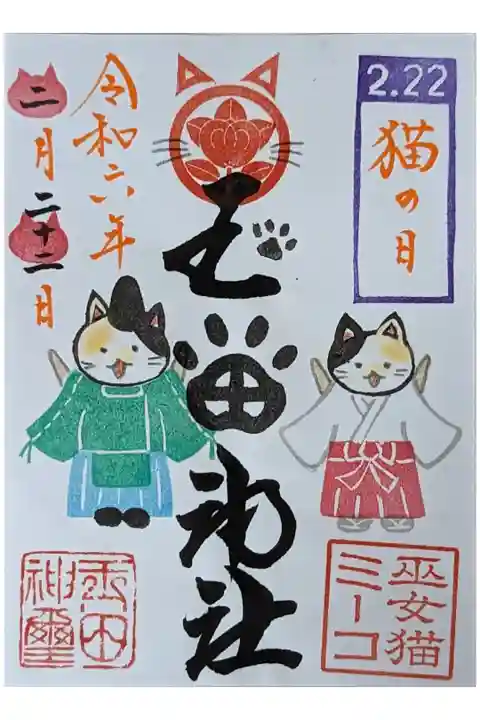 2.22
猫の日
玉田神社
令和六年
二月二十二日
巫女猫
ミーコ
玉田
神璽